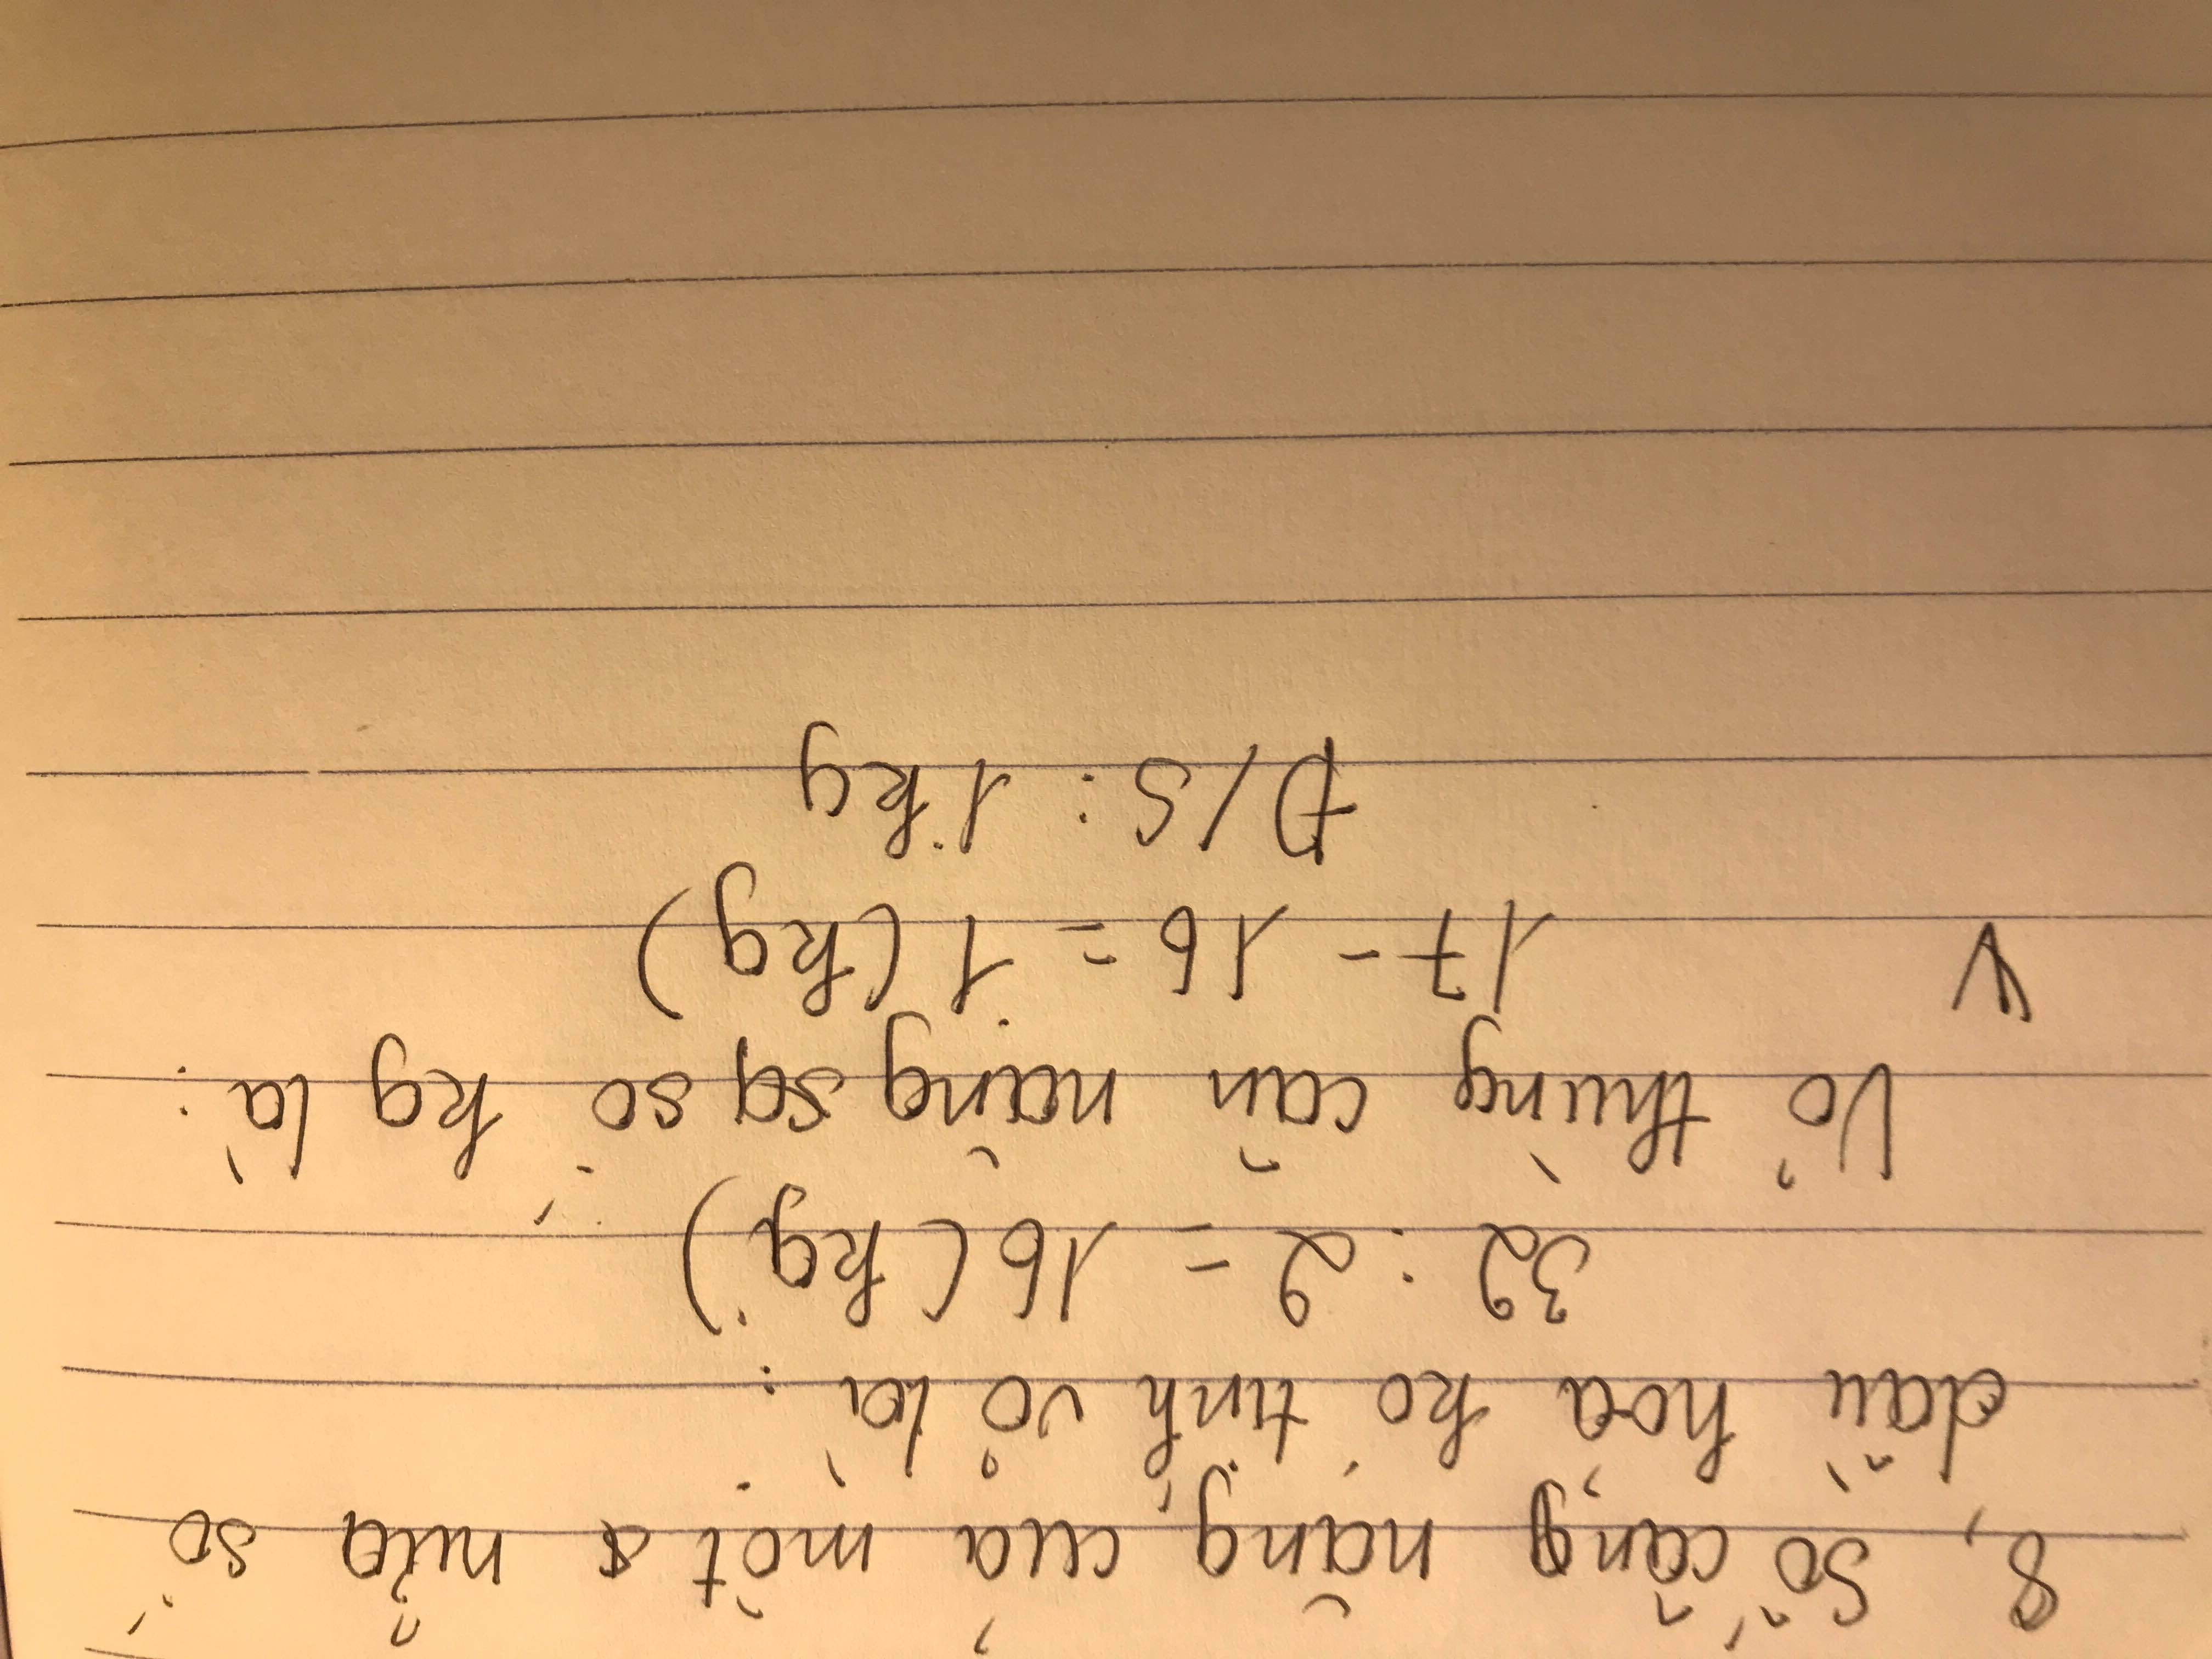 8, Số cân nặng của một nửa số
dầu hoả ko tính vỏ là :
32 : 2 = 16 ( kg )
Vỏ thùng cân nặng số kg là :
17 - 16 = 1 ( kg )
Đ/S : 1 kg